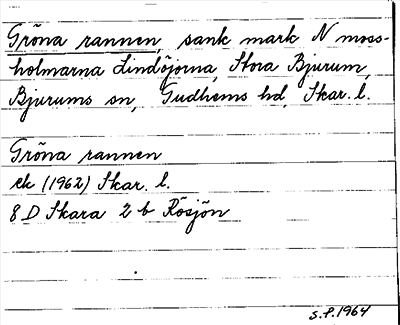 Gröna rannen, sank mark N moss-
holmarna Lindöjorna, Stora Bjurum,
Bjurums sn, Gudhems hd, Skar. l.
Gröna rannen
ek (1962) Skar. l.
8 D Skara 2 b Rösjön
S.P. 1964